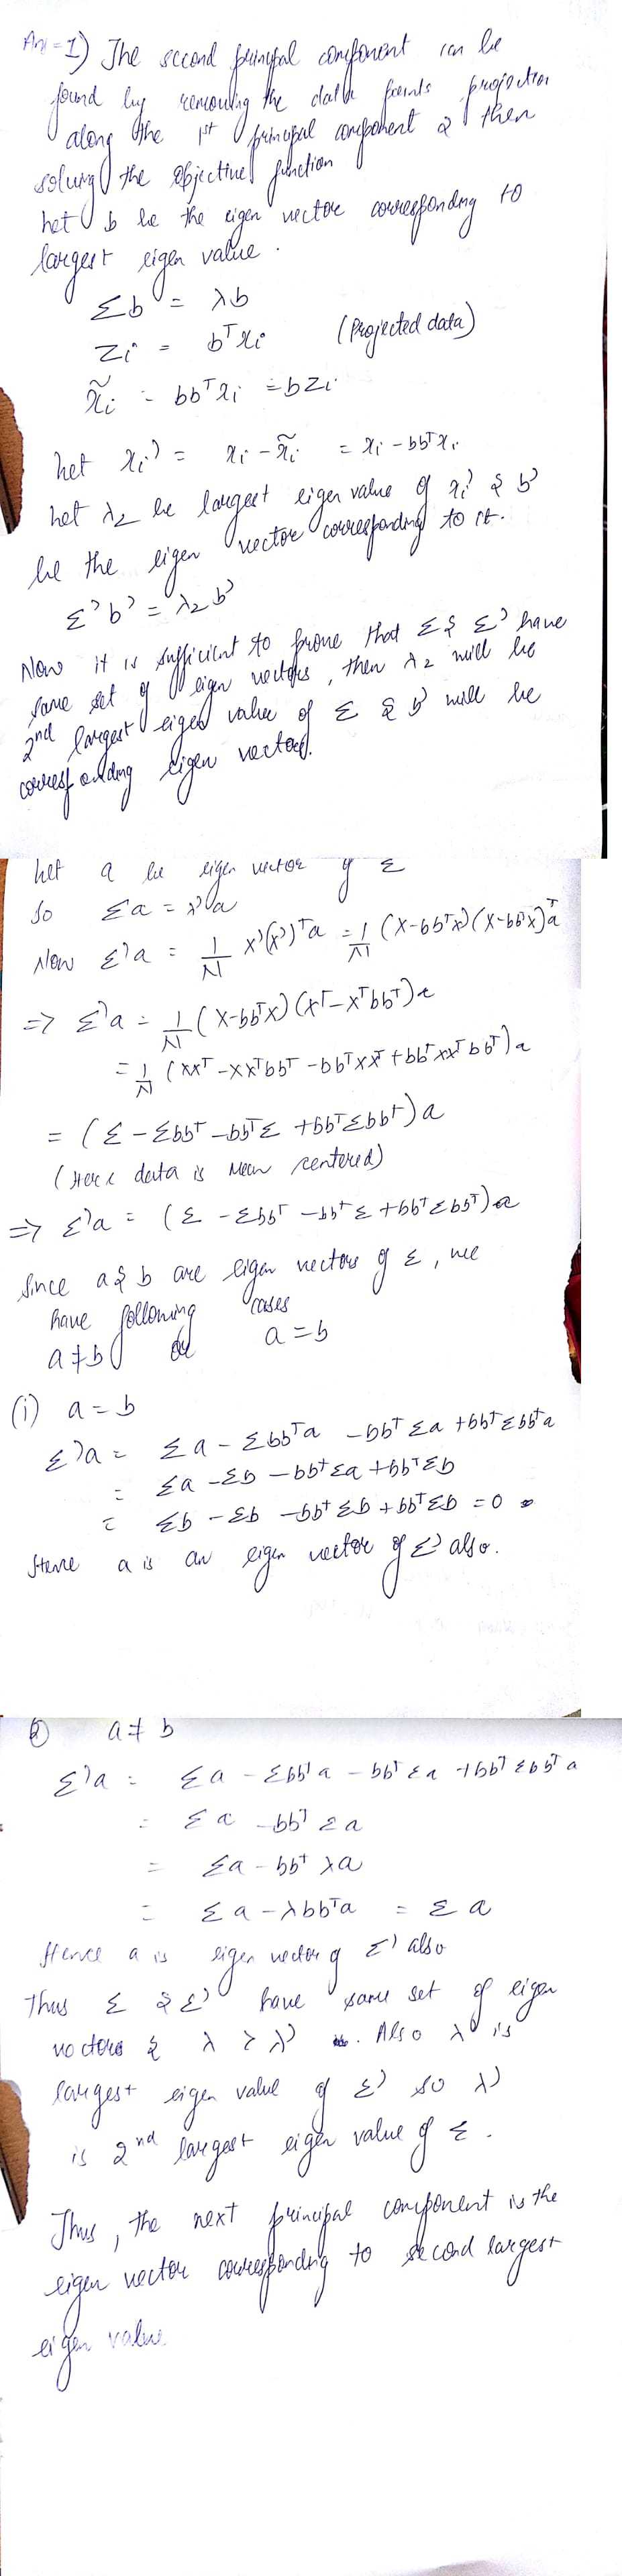 Ans-1) The second principal component can be
found by removing the data points projection
along the 1st principal component & then
solving the objective function
Let b be the eigen vector corresponding to
largest eigen value.
Σb = λb
zi = bᵀxi (Projected data)
x̃i = bbᵀxi = bzi
Let xi' = xi - x̃i = xi - bbᵀxi
Let λ2 be largest eigen value of xi' & b'
be the eigen vector corresponding to it.
Σ'b' = λ2b'
Now it is sufficient to prove that Σ & Σ' have
same set of eigen vectors, then λ2 will be
2nd largest eigen value of Σ & b' will be
corresponding eigen vector.
Let a be eigen vector of Σ
So Σa = λ'a
Now Σ'a = 1/N X'(X')ᵀa = 1/N (X-bbᵀX)(X-bbᵀX)ᵀa
=> Σ'a = 1/N (X-bbᵀX)(Xᵀ-Xᵀbbᵀ)a
= 1/N (XXᵀ - XXᵀbbᵀ - bbᵀXXᵀ + bbᵀXXᵀbbᵀ)a
= (Σ - Σbbᵀ - bbᵀΣ + bbᵀΣbbᵀ)a
(Here data is Mean centered)
=> Σ'a = (Σ - Σbbᵀ - bbᵀΣ + bbᵀΣbbᵀ)a
Since a & b are eigen vectors of Σ, we
have following cases
a ≠ b or a = b
(i) a = b
Σ'a = Σa - Σbbᵀa - bbᵀΣa + bbᵀΣbbᵀa
= Σa - Σb - bbᵀΣa + bbᵀΣb
= Σb - Σb - bbᵀΣb + bbᵀΣb = 0
Hence a is an eigen vector of Σ' also.
② a ≠ b
Σ'a = Σa - Σbbᵀa - bbᵀΣa + bbᵀΣbbᵀa
= Σa - bbᵀΣa
= Σa - bbᵀλa
= Σa - λbbᵀa = Σa
Hence a is eigen vector of Σ' also
Thus Σ & Σ' have same set of eigen
vectors & λ > λ'. Also λ' is
largest eigen value of Σ' so λ'
is 2nd largest eigen value of Σ.
Thus, the next principal component is the
eigen vector corresponding to second largest
eigen value